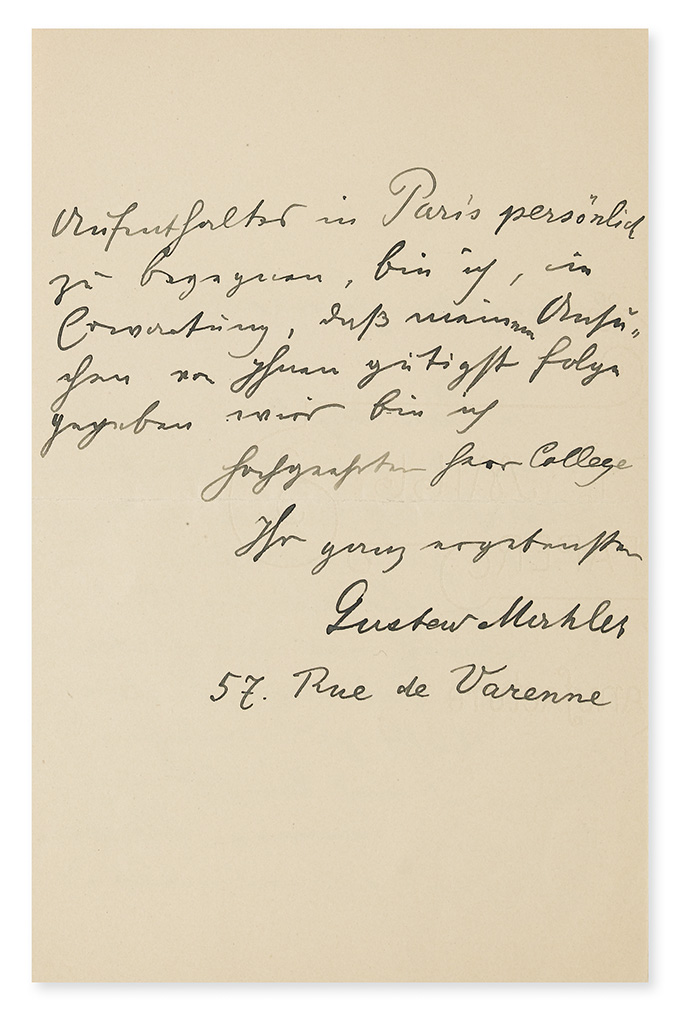 Aufenthaltes in Paris persönlich
zu begegnen, bin ich, in
Erwartung, daß meinem Ansu„
chen von Ihnen gütigst folge
gegeben wird bin ich
hochgeehrter Herr College
Ihr ganz ergebenster
Gustav Mahler
57. Rue de Varenne